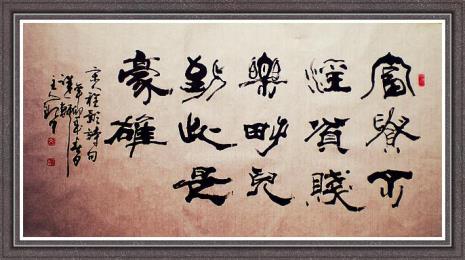 富貴不
淫貧賤
樂男兒
到此是
豪雄
宋人程顥詩句
辛卯年春